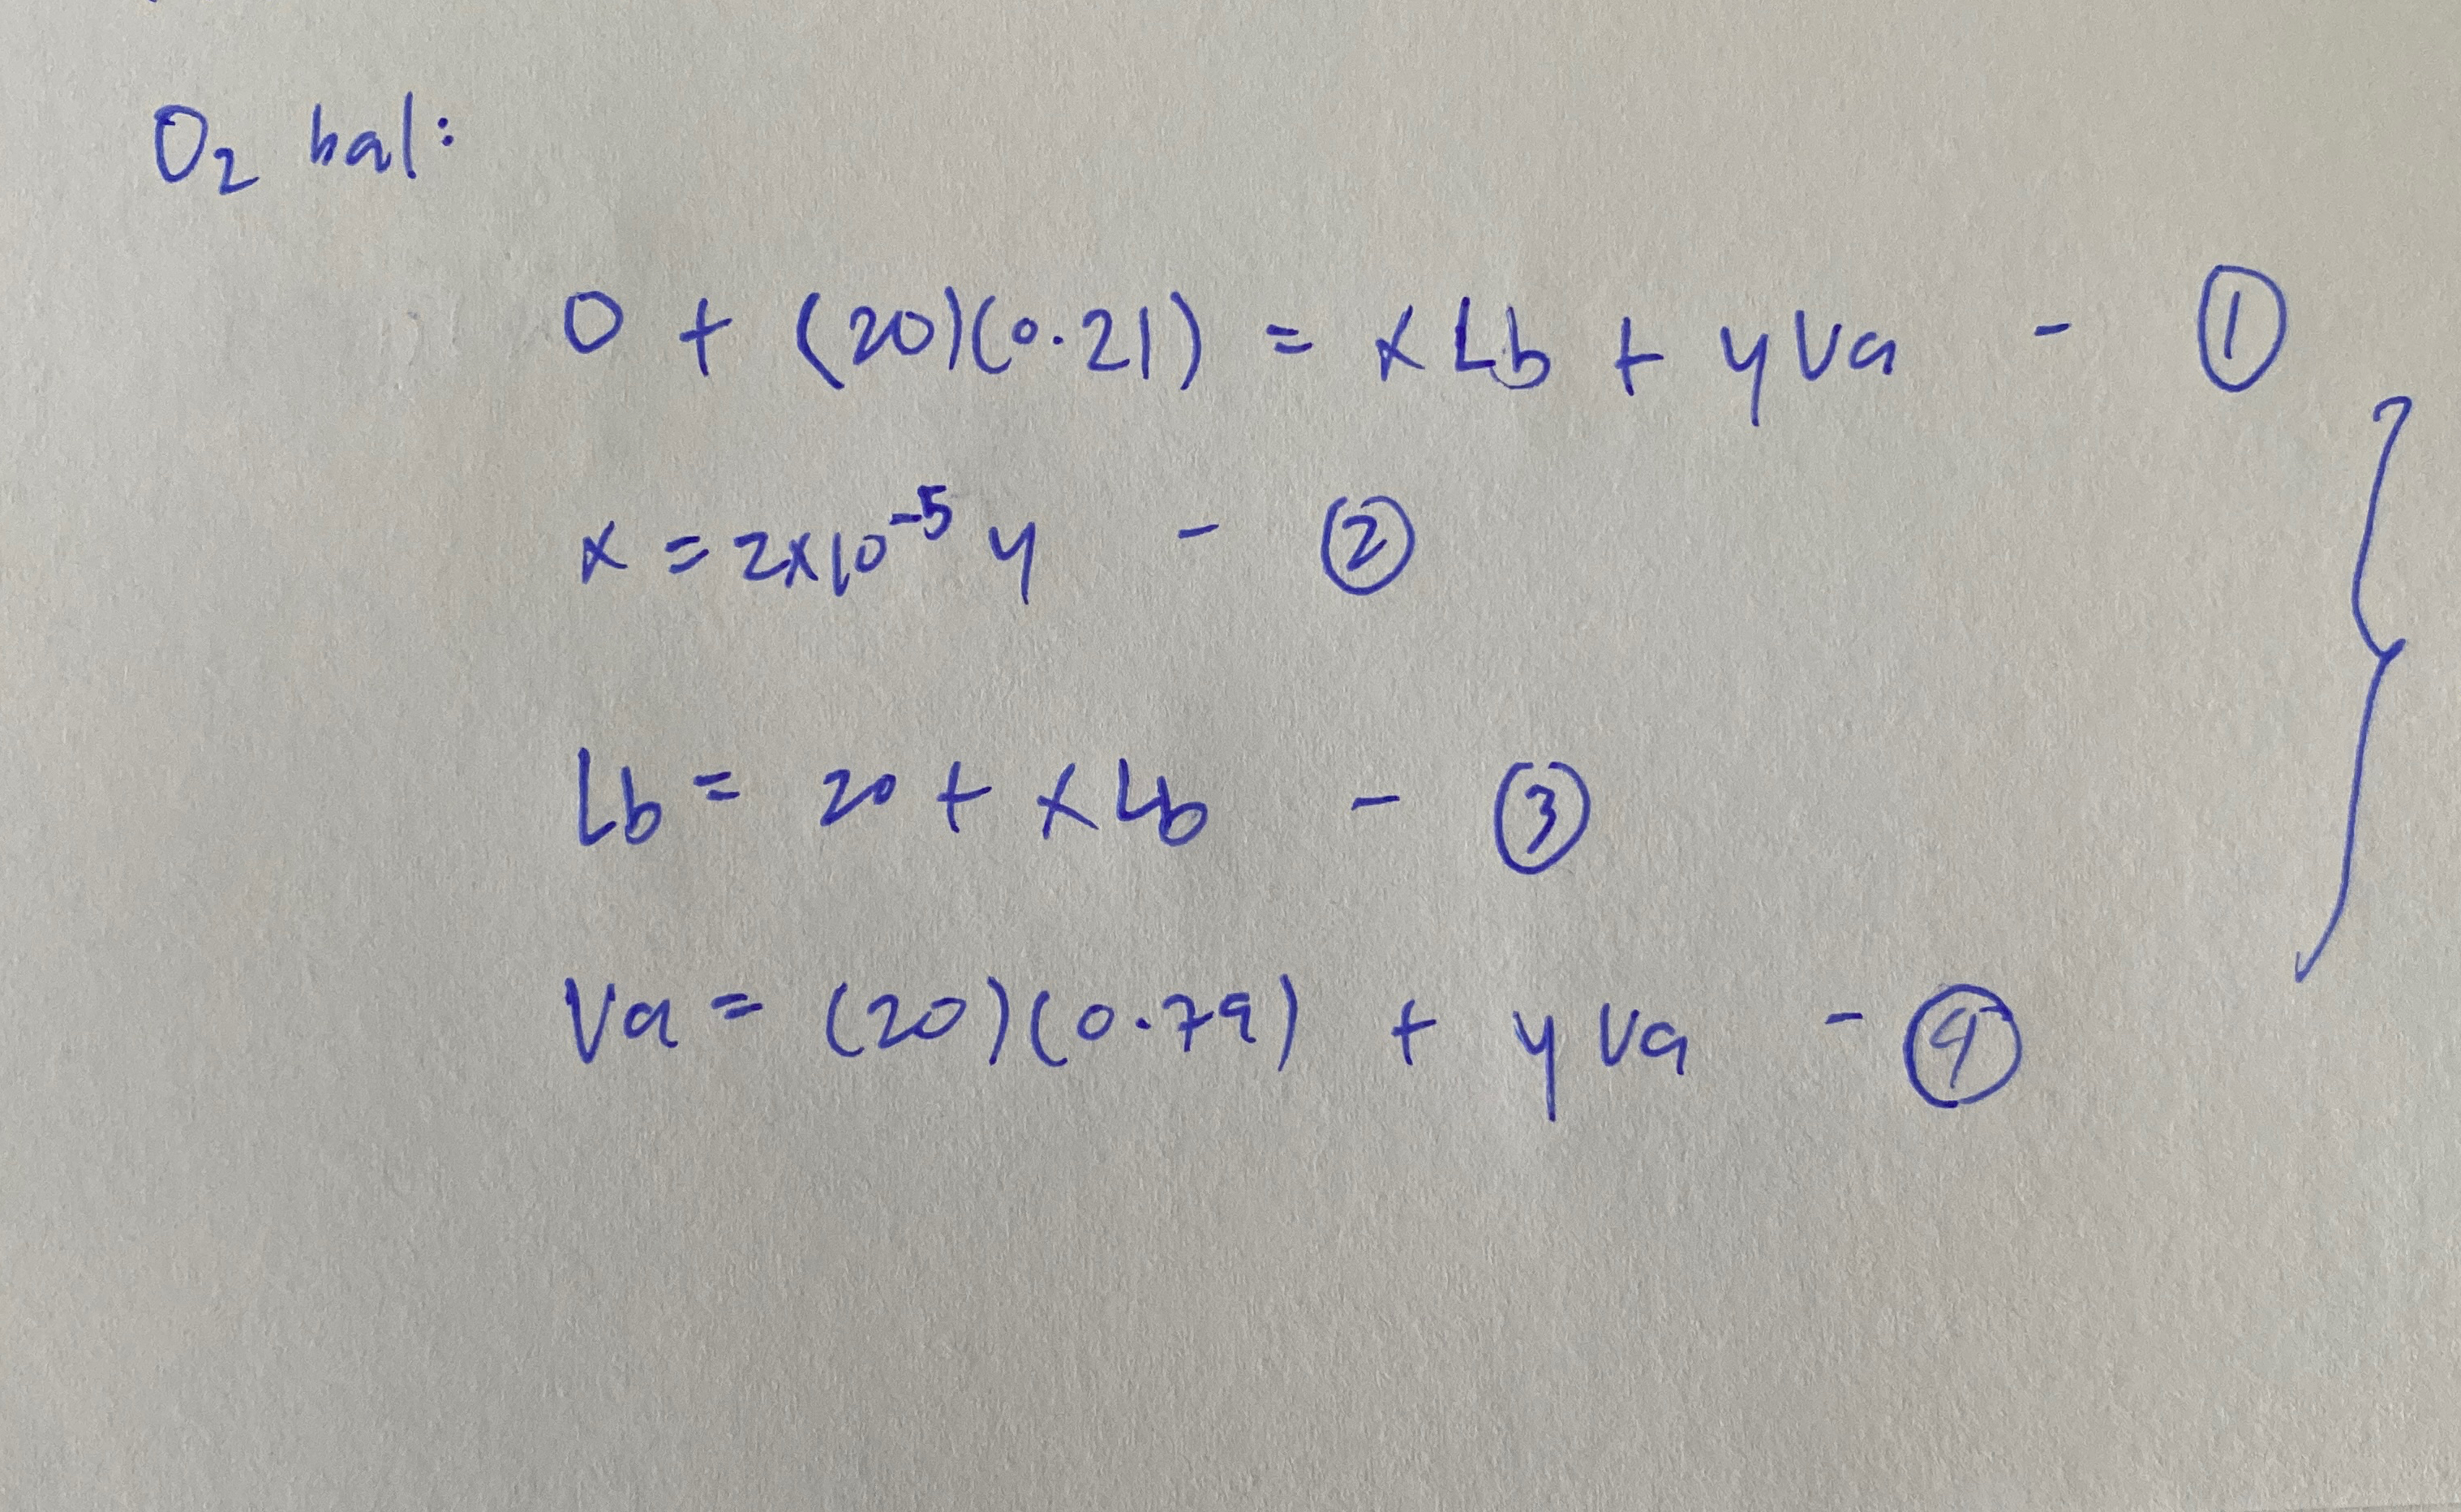 O₂ bal:
0 + (20)(0.21) = xLb + yVa - ①
x = 2x10⁻⁵ y - ②
Lb = 20 + xLb - ③
Va = (20)(0.79) + yVa - ④